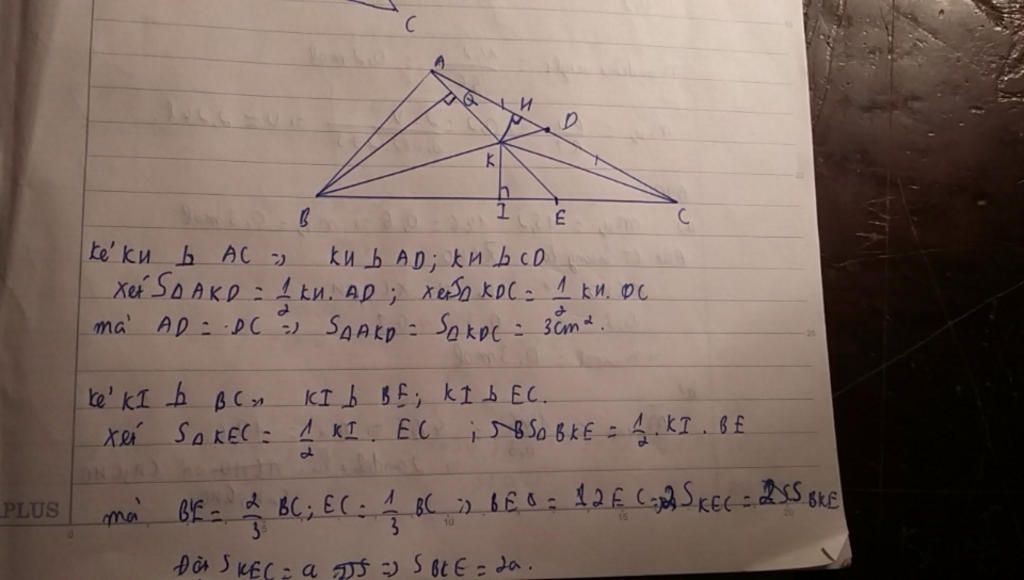 C
A
Q H D
K
B I E C
kẻ KH ⊥ AC => KH ⊥ AD; KH ⊥ CD
xét SΔAKD = 1/2 KH. AD; xét SΔKDC = 1/2 KH. DC
mà AD = DC => SΔAKD = SΔKDC = 3cm².
kẻ KI ⊥ BC => KI ⊥ BE; KI ⊥ EC.
xét SΔKEC = 1/2 KI. EC ; SΔBKE = 1/2. KI. BE
PLUS
mà BE = 2/3 BC; EC = 1/3 BC => BE = 2EC => 2SKEC = SBKE
Đặt SKEC = a => SBKE = 2a.